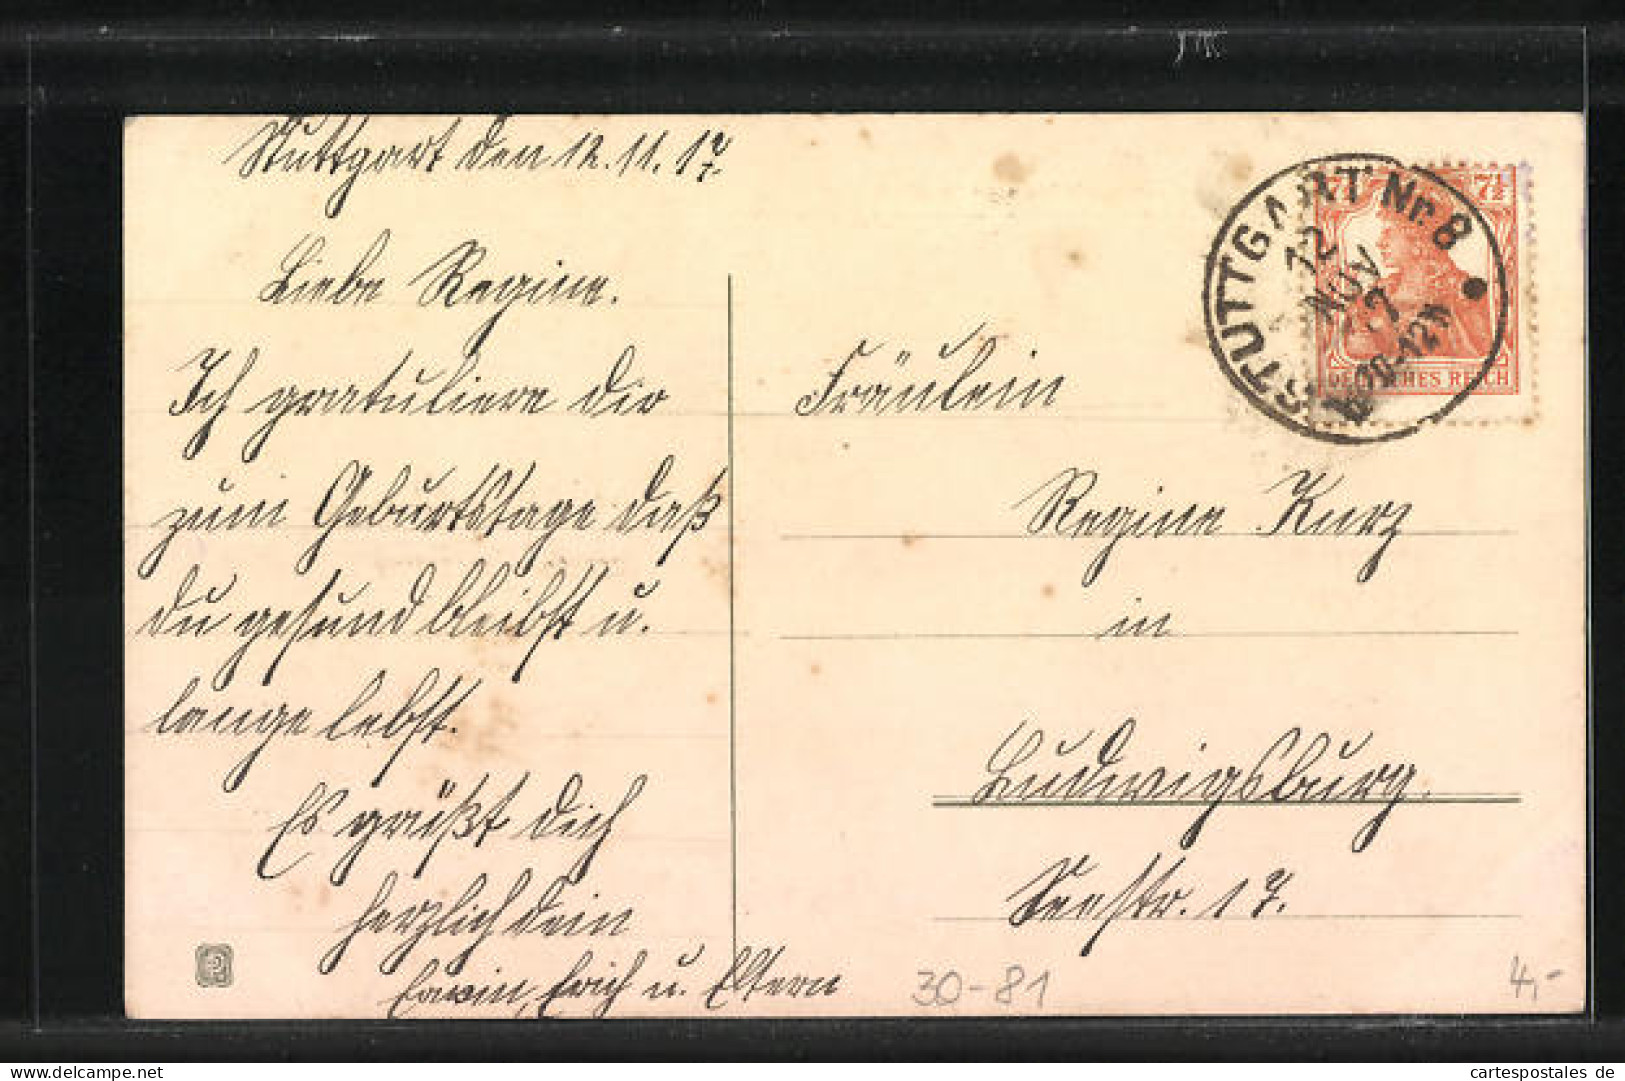 Stuttgart den 12.11.17.
Liebe Regine.
Ich gratuliere dir
zum Geburtstage daß
du gesund bleibst u.
lange lebst.
Es grüßt dich
herzlich dein
Erwin, Erich u. Eltern
Fräulein
Regine Kurz
in
Ludwigsburg.
Seestr. 17.
STUTTGART Nr. 8
12
NOV
17
10-12
7½
DEUTSCHES REICH
30-81
4,-
cartespostales de